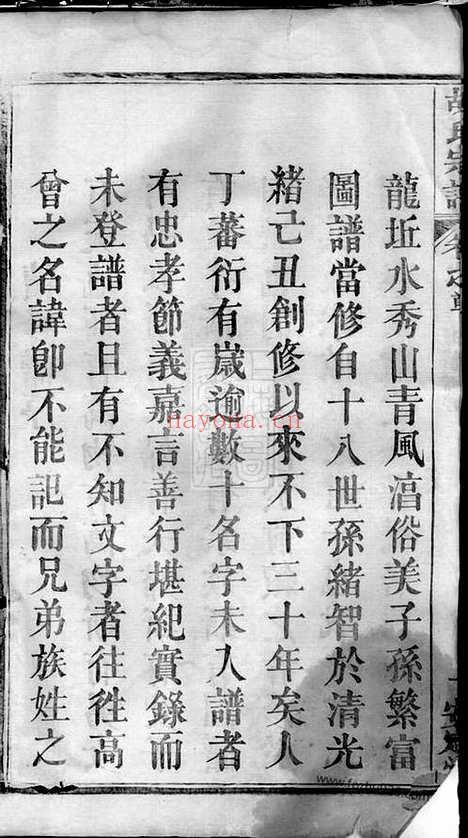 胡氏宗譜
龍坵水秀山青風湻俗美子孫繁富
圖譜當修自十八世孫緒智於清光
緒己丑創修以來不下三十年矣人
丁蕃衍有歲逾數十名字未入譜者
有忠孝節義嘉言善行堪紀實錄而
未登譜者且有不知文字者往徃高
曾之名諱卽不能記而兄弟族姓之
nayona.cn